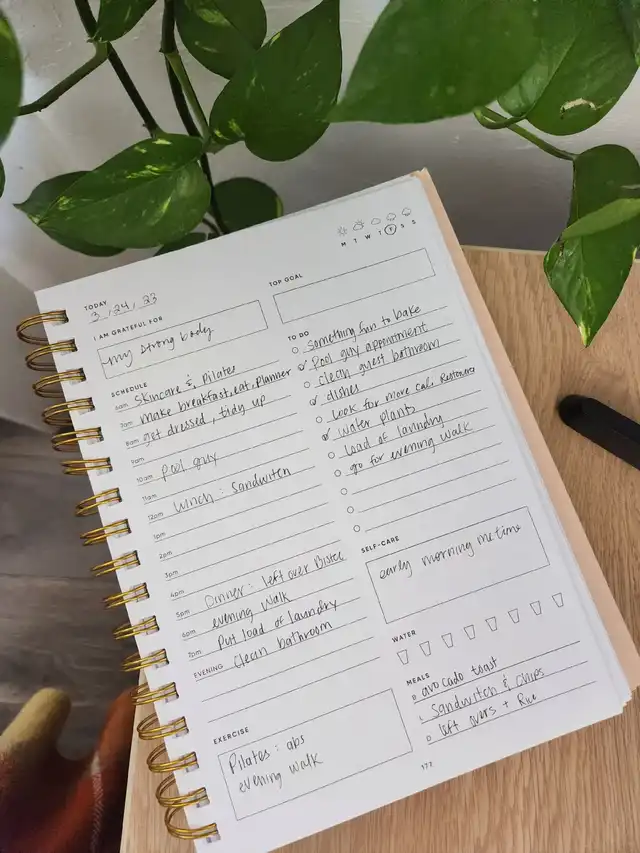 M T W T F S S
TODAY
3.24.23
I AM GRATEFUL FOR
my strong body
TOP GOAL
SCHEDULE
6am Skincare & Pilates
7am make breakfast, eat, Planner
8am get dressed, tidy up
9am
10am pool guy
11am
12pm Lunch: Sandwitch
1pm
2pm
3pm
4pm
5pm Dinner: left over
6pm evening walk
7pm Put load of laundry
EVENING Clean bathroom
TO DO
something fun to bake
Pool guy appointment
clean guest bathroom
dishes
look for more cal.
water plants
load of laundry
go for evening walk
SELF-CARE
early morning me time
WATER
MEALS
B avocado toast
L Sandwitch & chips
D left overs + Rice
EXERCISE
Pilates: abs
evening walk
177